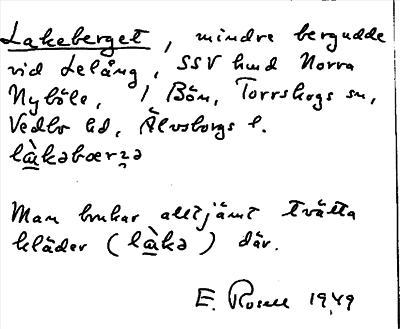 Lakeberget, mindre bergudde
vid Lelång, SSV hmd Norra
Nyböle, / Bön, Torrskogs sn,
Vedbo hd, Älvsborgs l.
là̱kəbærʒə
Man brukar alltjämt tvätta
kläder (là̱kə) där.
E. Rosell 1949